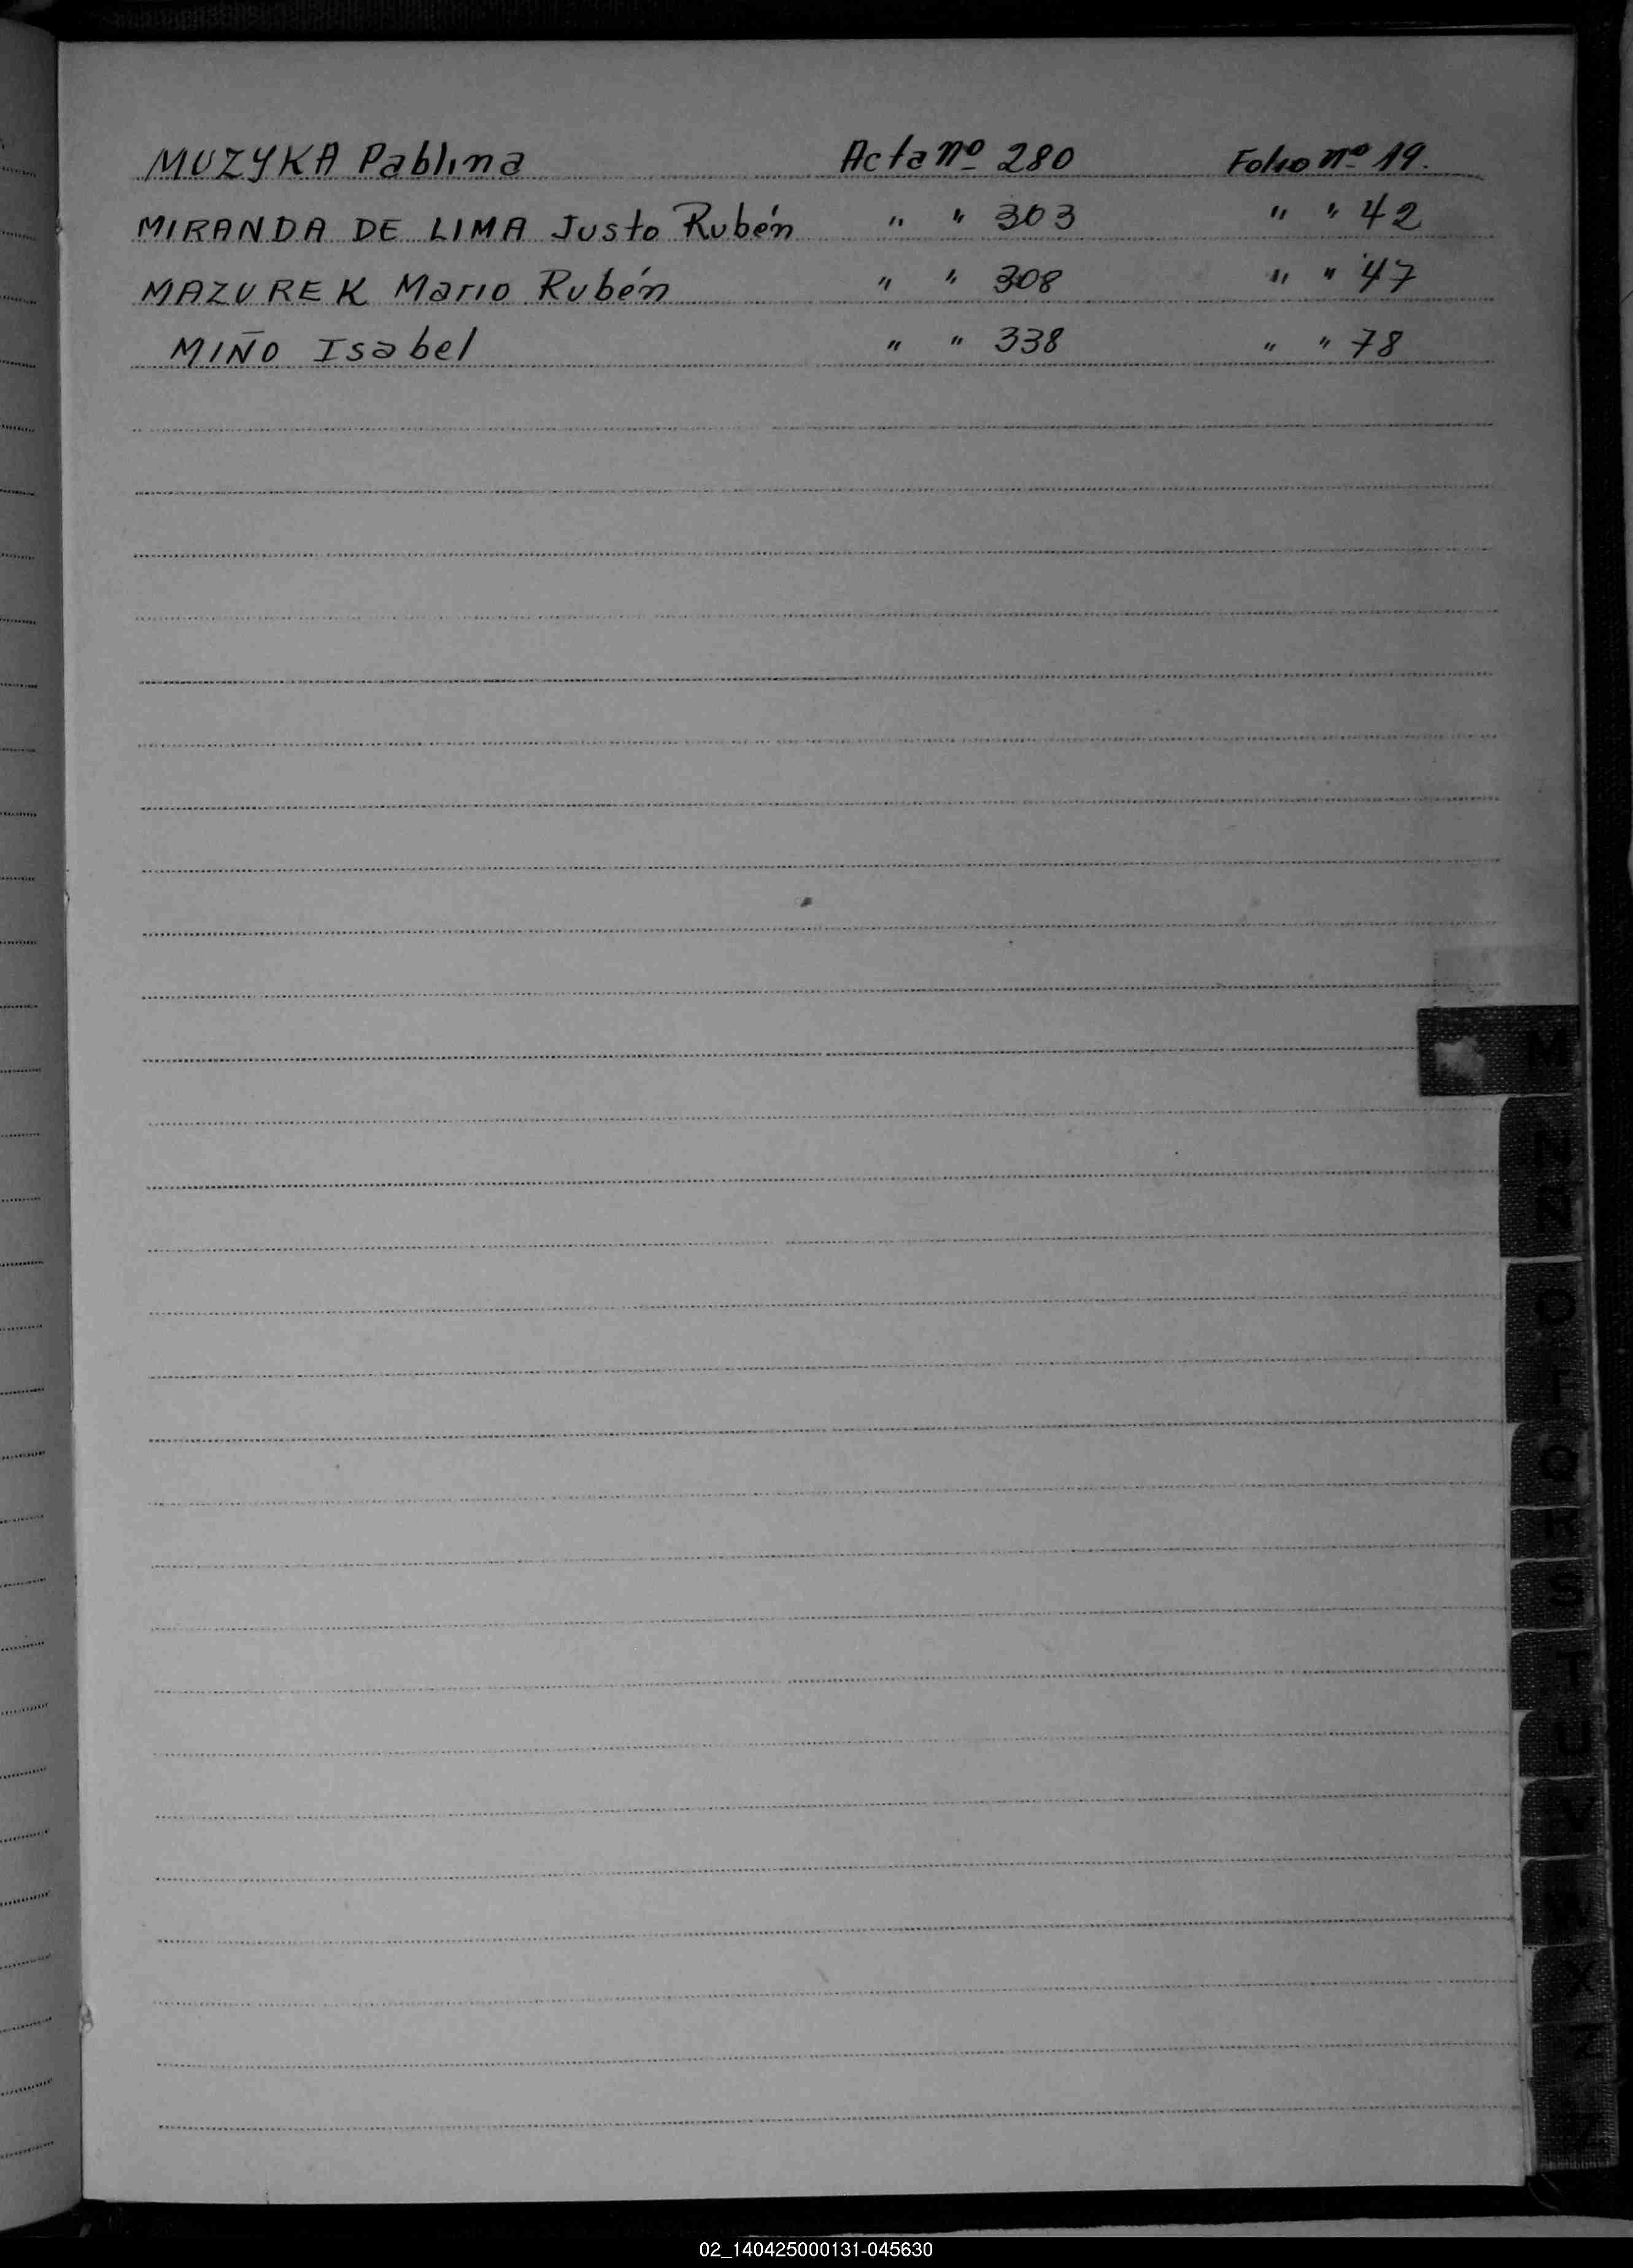 MUZYKA Pablina Acta nº 280 Folio nº 19.
MIRANDA DE LIMA Justo Rubén " " 303 " " 42
MAZUREK Mario Rubén " " 308 " " 47
MIÑO Isabel " " 338 " " 78
M
N
Ñ
O
P
Q
R
S
T
U
V
X
Z
02_140425000131-045630